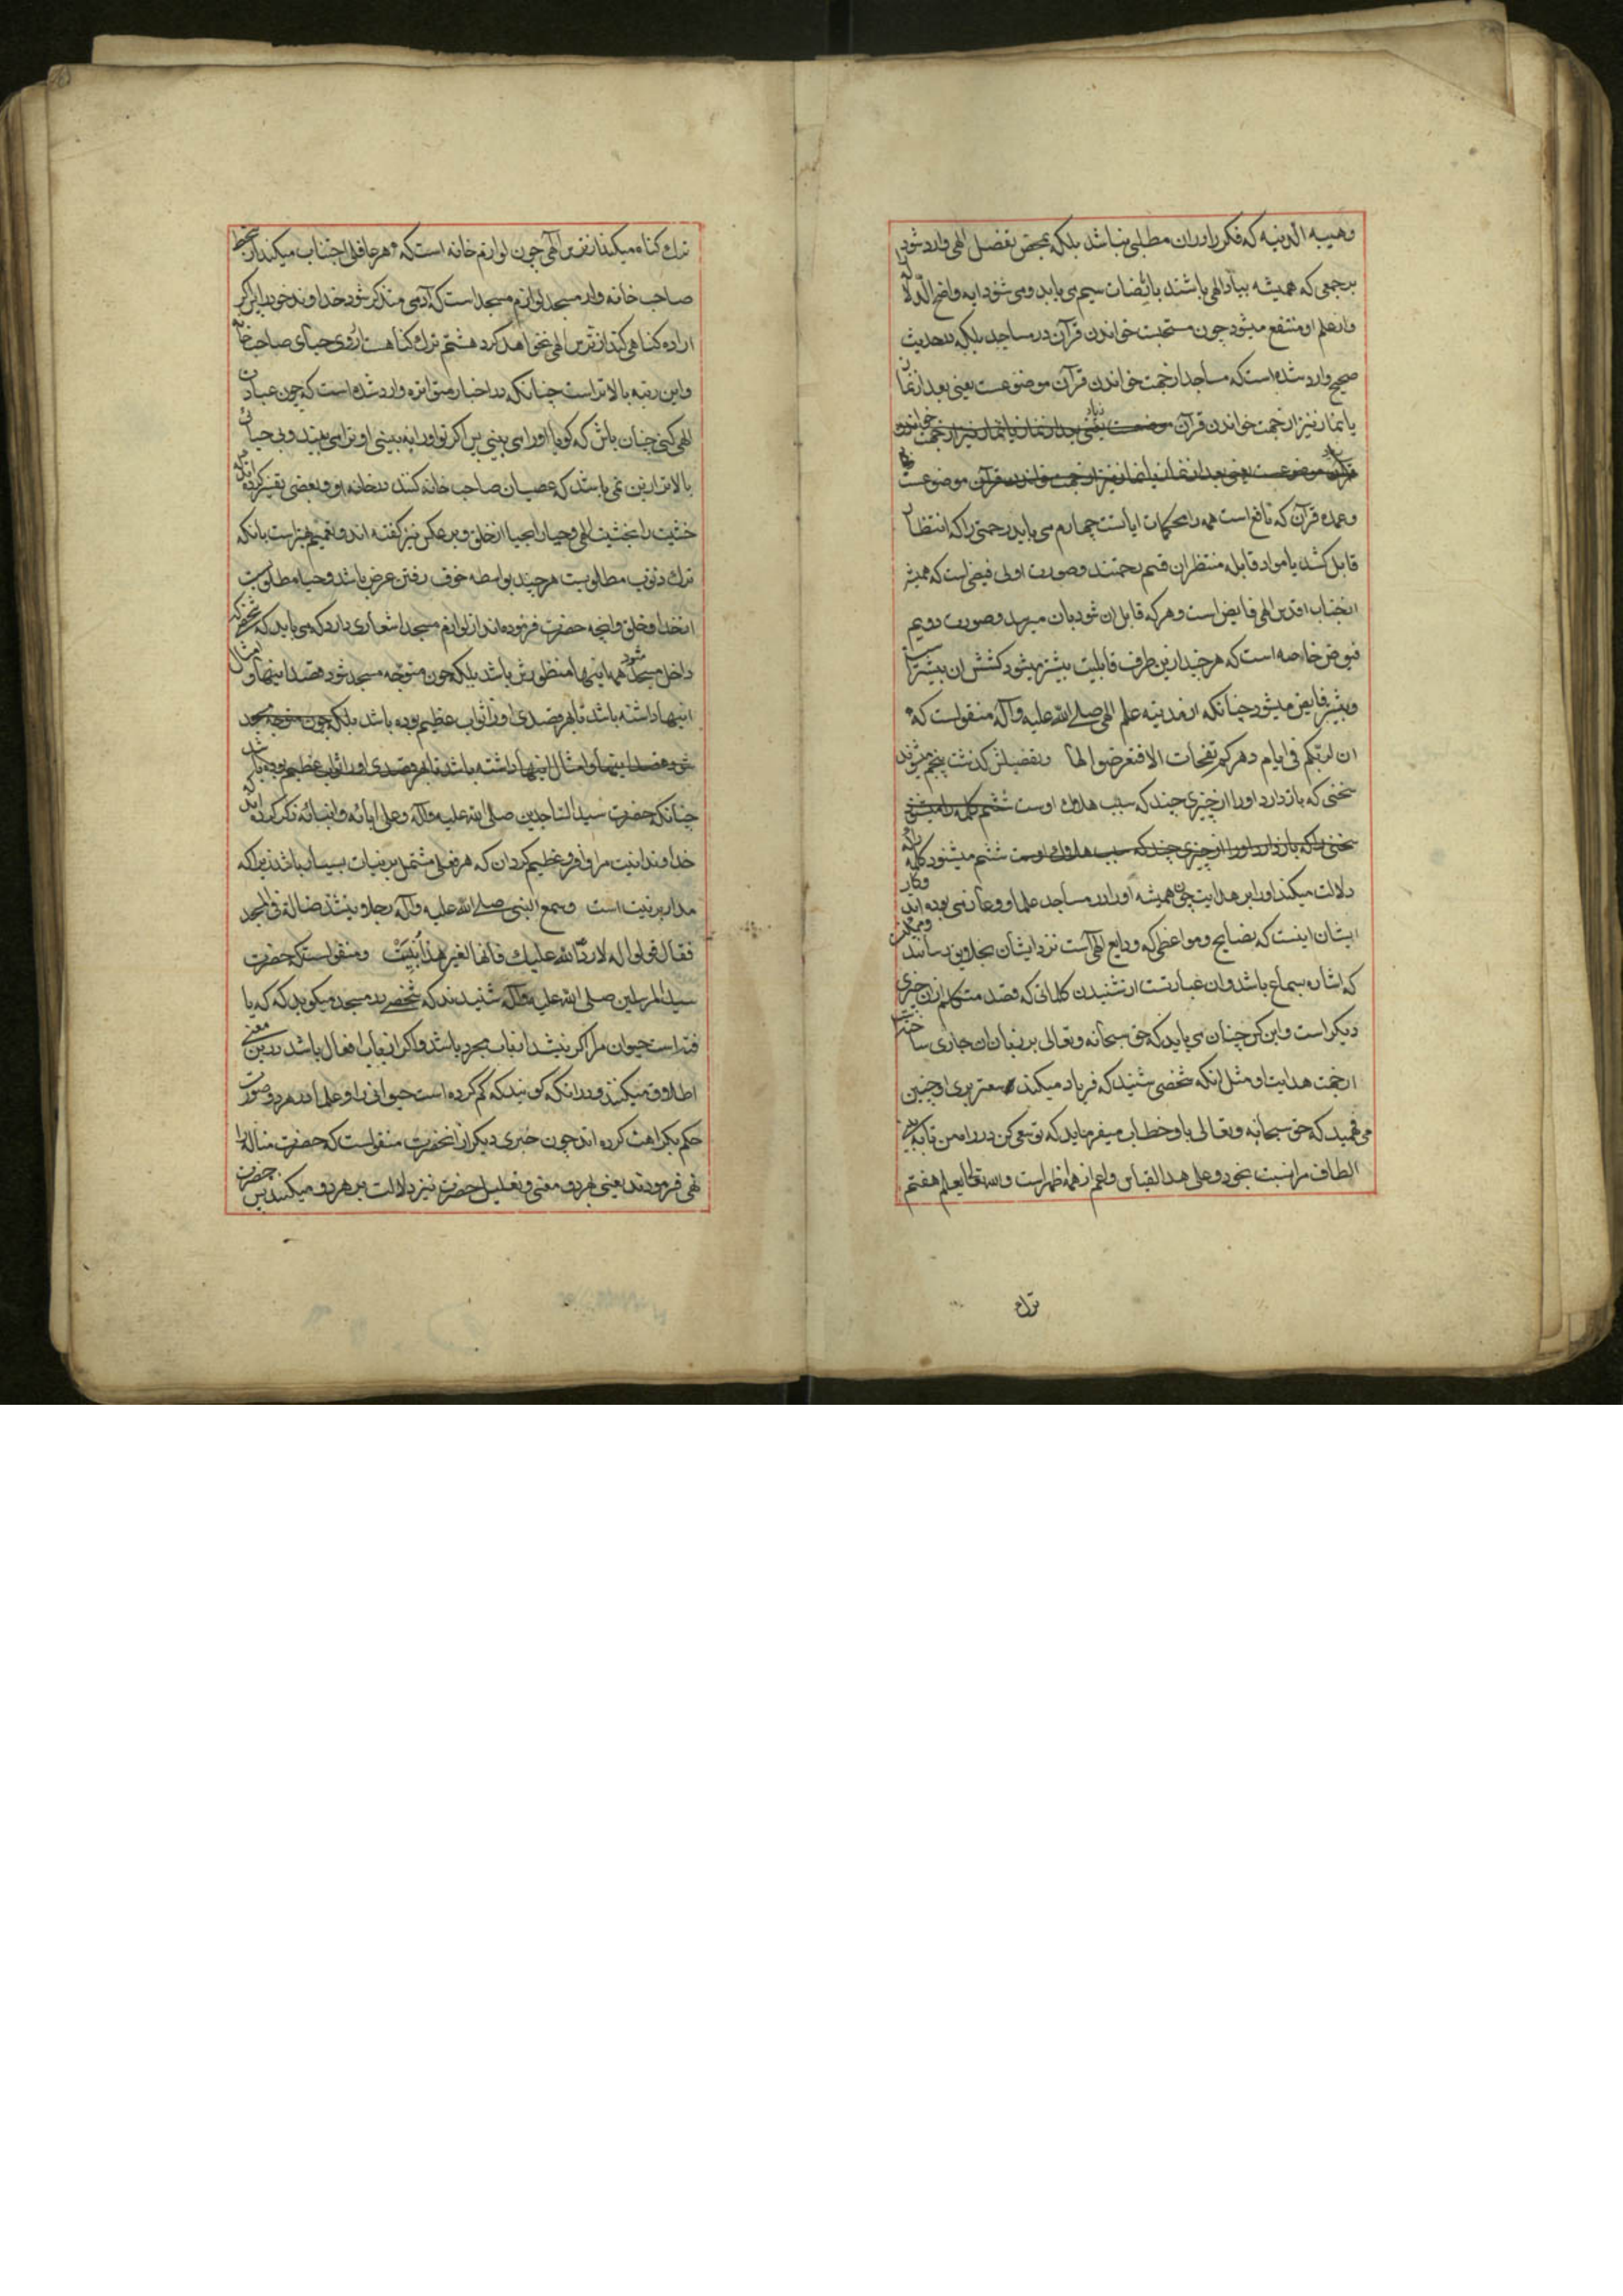 وهبیه الدنیه که فکر را در ان مطلبی نباشد بلکه بمحض تفضل الهی وارد شود
بر جمعی که همیشه بیاد الهی باشند یا سیم می یابد و می شنود ایه واضح الدلاله
واز علم او منتفع میشود چون مستحبست خواندن قرآن در مساجد بلکه در حدیث
صحیح وارد شده است که مساجد از جهت خواندن قرآن موضوعست یعنی بعد از نماز
یا نماز نیز از جهت خواندن قرآن موضوعست یعنی بعد از نماز یا نماز نیز از جهت خواندن
قرآن موضوعست یعنی بعد از نماز یا نماز نیز از جهت خواندن قرآن موضوعست
وعمده قرآن که نافع است همه را محکمات ایاتست چهارم می یابد رحمتی را که انتظار
قابل کشد یا مواد قابله منتظران قسم رحمتند وصورت اولی فیضی است که همیشه
از جناب اقدس الهی فایض است وهر که قابل ان شود بان میرسد وصورت دویم
فیوض خاصه است که هر چند ازین طرف قابلیت بیشتر میشود کشش ان بیشتر است
وبیشتر فایض میشود چنانکه از مدینه علم الهی صلی الله علیه وآله منقولست که
ان لربکم فی ایام دهرکم نفحات الا فتعرضوا لها وتفضیلش کذشت پنجم میشنود
سخنی که باز دارد اورا از چیزی چند که سبب هلاک اوست ششم کلمه را میشنود
سخنی را که باز دارد اورا از چیزی چند که سبب هلاک اوست ششم میشنود کلمه را که
دلالت میکند اورا بر هدایت چون همیشه اورا در مساجد علما بوده اند وکار
ایشان اینست که نصایح ومواعظی که ودایع الهی است نزد ایشان بخلایق رسانند وممکن
که اشاره بسماع باشد وان عبارتست از شنیدن کلماتی که قصد متکلم ازان چیزی
دیکر است واین کس چنان می یابد که حق سبحانه وتعالی بر زبان ان جاری ساخته
از جهت هدایت او مثل انکه شخصی شنید که فریاد میکند سعتر بری او چنین
می فهمید که حق سبحانه وتعالی باو خطاب میفرماید که تو سعی کن در راه من تا به بینی
الطاف مرا نسبت بخود وعلی هذا القیاس واعم از همه اظهر است والله تعالی یعلم هفتم
ترک
ترک کناه میکند از ترس الهی چون لوازم خانه است که هر عاقلی اجتناب میکند از سخط
صاحب خانه واز مسجد لوازم مسجد است که آدمی متذکر شود خداوند خود را پس اکر
اراده کناهی کند از ترس الهی نخواهد کرد هشتم ترک کناهست از روی حیای صاحب خانه
واین رتبه بالاتر است چنانکه در اخبار متواتره وارد شده است که چون عبادت
الهی کنی چنان باش که کویا اورا می بینی پس اکر تو اورا نه بینی او ترا می بیند وبی حیائی
بالاتر ازین نمی باشد که عصیان صاحب خانه کنند در خانه او وبعضی تفسیر کرده اند
خشیت را بخشیت الهی وحیا را بحیا از خلق وبر عکس نیز کفته اند وتعمیم بهتر است بانکه
ترک ذنوب مطلوبست هر چند بواسطه خوف رفتن عرض باشد وحیا مطلوبست
از خدا وخلق وانچه حضرت فرموده اند از لوازم مسجد اشعاری دارد که می باید که شخصی که
داخل مسجد شود همه اینها منظورش باشد بلکه چون متوجه مسجد شود قصد اینها وامثال
اینها داشته باشد تا بهر قصدی اورا ثواب عظیم بوده باشد بلکه چون متوجه مسجد
شود قصد اینها وامثال اینها داشته باشد تا بهر قصدی اورا ثواب عظیم بوده باشد
چنانکه حضرت سید الساجدین صلی الله علیه وآله وعلی آبائه وابنائه ذکر کرده اند که
خداوندا نیت مرا وافر وعظیم کردان که هر فعلی مشتمل بر نیات بسیار باشد زیرا که
مدار بر نیت است وسمع النبی صلی الله علیه وآله رجلا ینشد ضالة فی المسجد
فقال قولوا له لا رد الله علیک فانها لغیر هذا بنیت ومنقولست که حضرت
سید المرسلین صلی الله علیه وآله شنیدند که شخصی در مسجد میکوید که که یا
فته است حیوان مرا اکر ینشد از باب مجرد باشد واکر از باب افعال باشد درین معنی
اطلاق میکنند ودر انکه کوئید که کم کرده است حیوانی را وعلما در هر دو صورت
حکم بکراهت کرده اند چون خبری دیکر از انحضرت منقولست که حضرت
نهی فرمودند یعنی بهر دو معنی وتعلیل حضرت نیز دلالت بر هر دو میکند پس حضرت